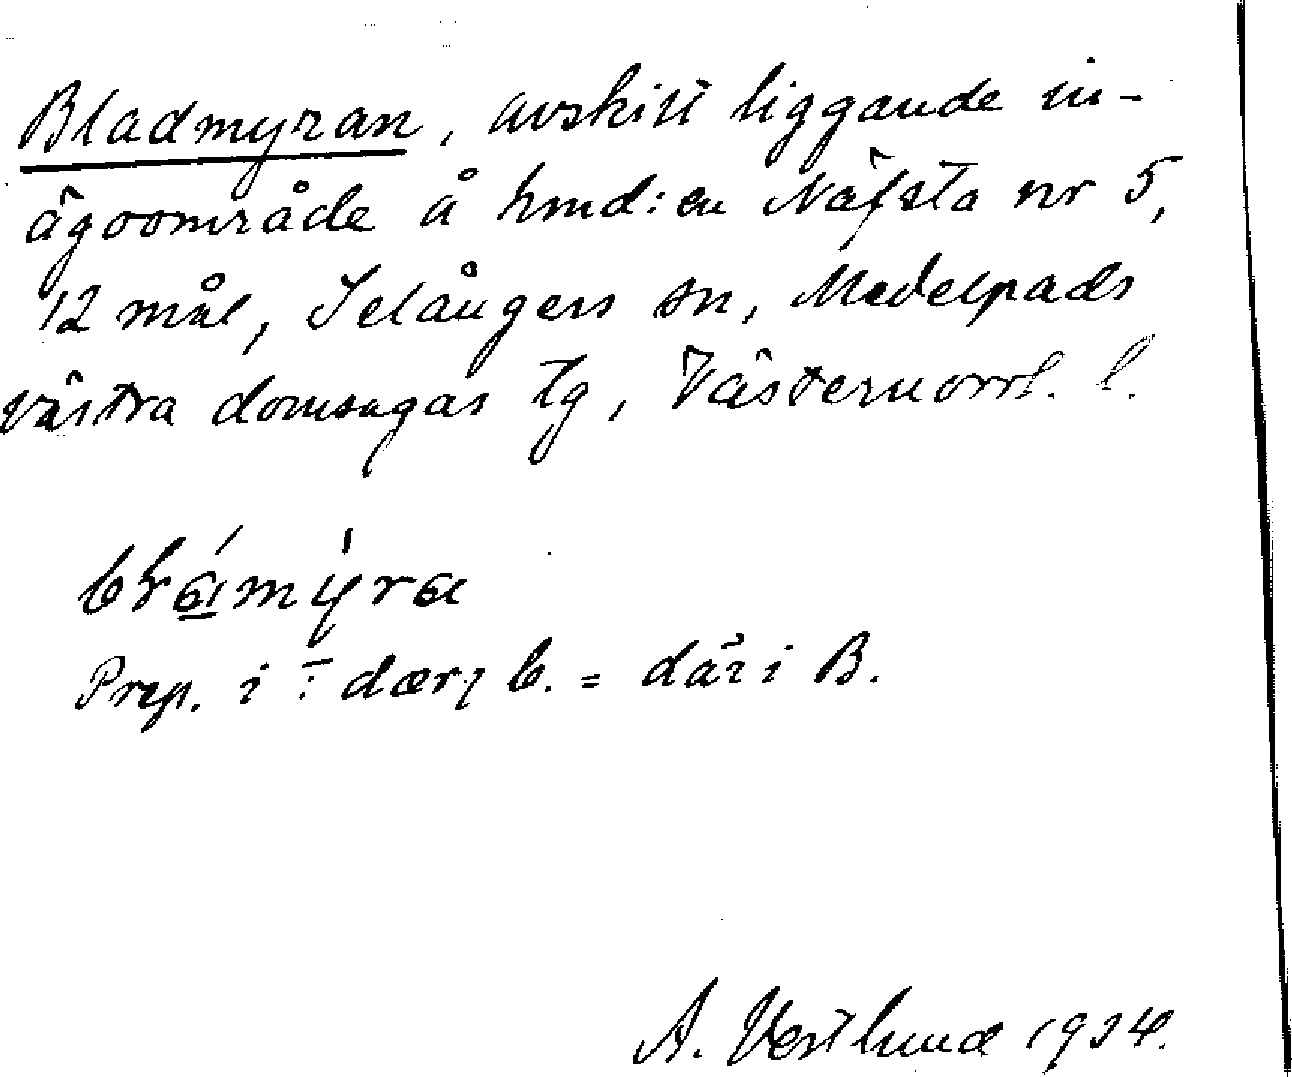 Bladmyran, avskilt liggande in-
ägoområde å hmd:en Näfsta nr 5,
12 mål, Selångers sn, Medelpads
västra domsagas tg, Västernorrl. l.
Prep. i : dær i b. = där i B.
A. Vestlund 1934.